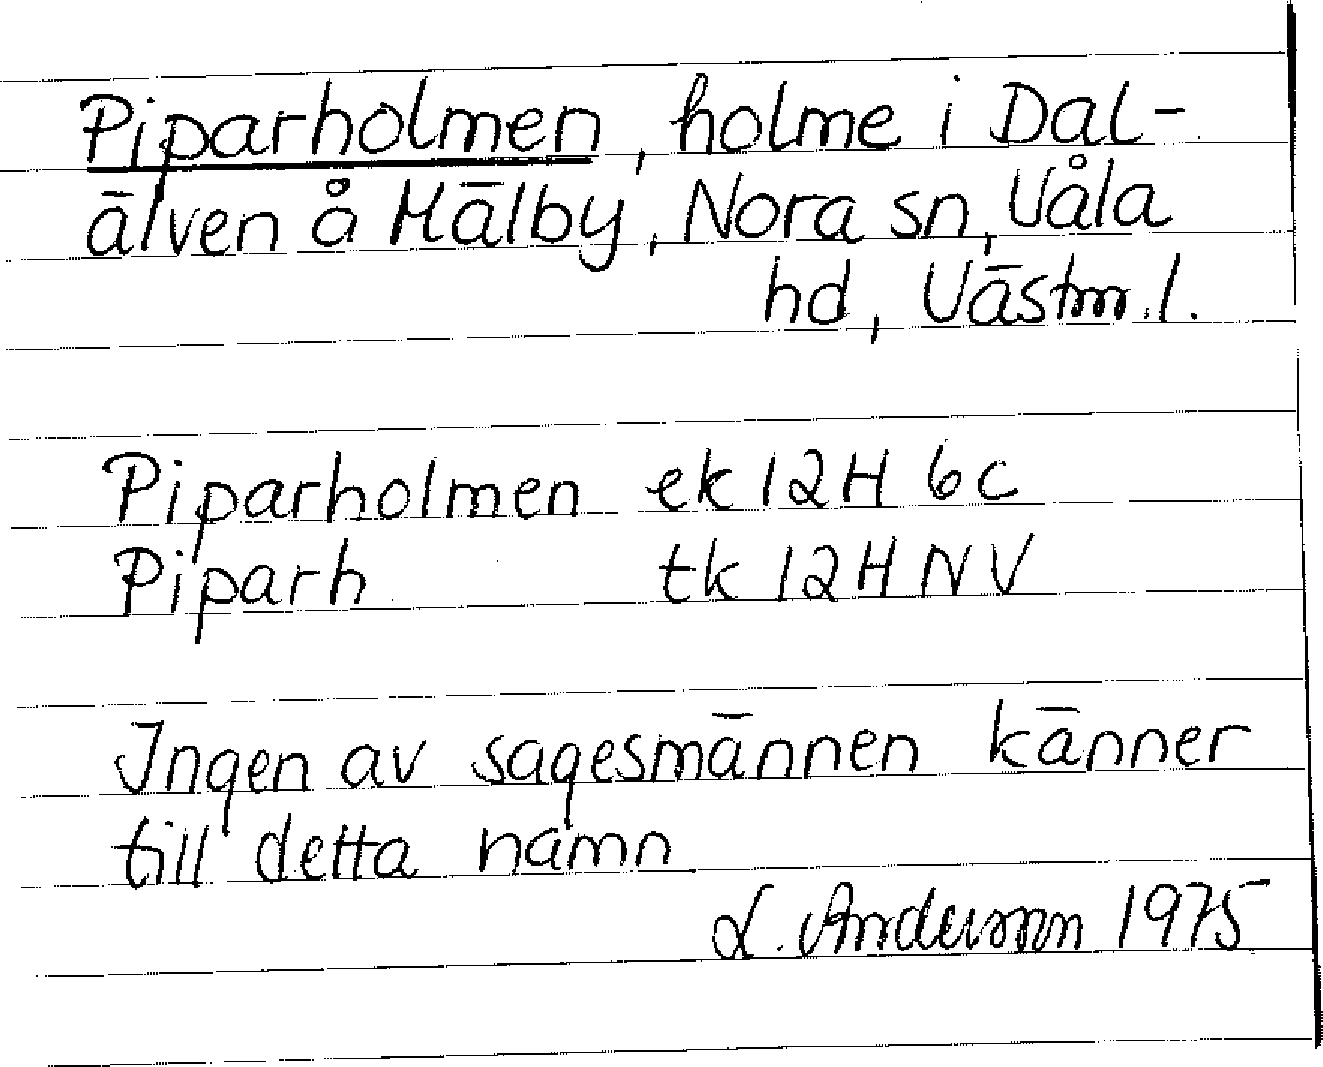 Piparholmen, holme i Dal-
älven å Hälby, Nora sn, Våla
hd, Västm.l.
Piparholmen ek 12H 6c
Piparh tk 12H NV
Ingen av sagesmännen känner
till detta namn
L. Andersson 1975